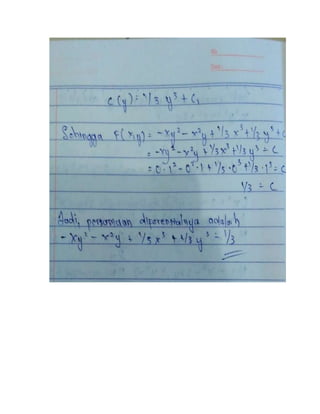 No.
Date:
C(y) = 1/3 y³ + C₁
Sehingga F(x,y) = -xy² - x²y + 1/3 x³ + 1/3 y³ + C
= -xy² - x²y + 1/3 x³ + 1/3 y³ = C
= 0·1² - 0²·1 + 1/3·0³ + 1/3·1³ = C
1/3 = C
Jadi, persamaan diferensialnya adalah
-xy² - x²y + 1/3 x³ + 1/3 y³ = 1/3